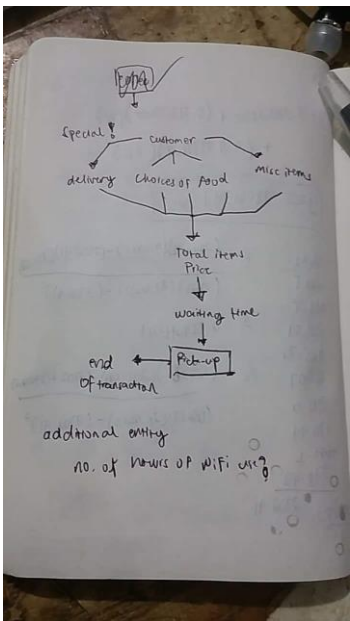 special!
customer
delivery
choices of food
misc items
Total items
Price
waiting time
end
Pick-up
of transaction
additional entity
no. of hours of wifi use?